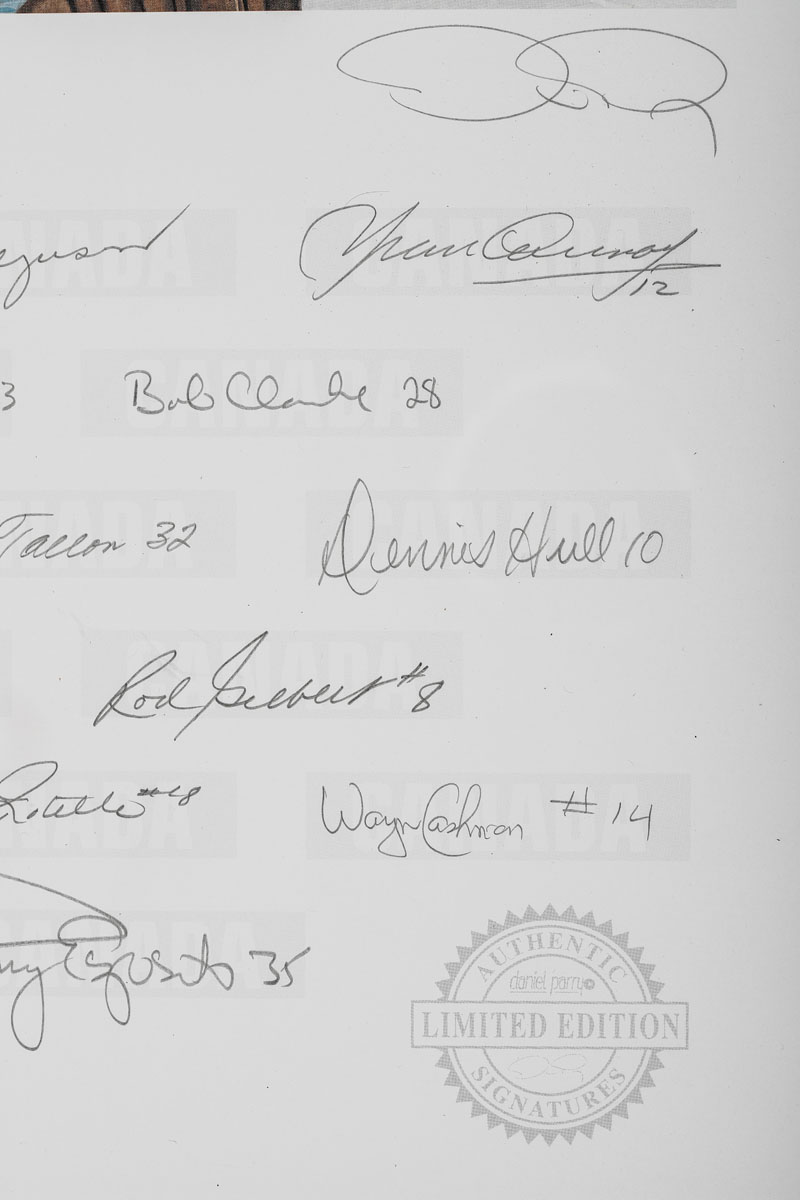 Yvan Cournoyer
12
3 Bob Clarke 28
Tallon 32 Dennis Hull 10
Rod Gilbert #8
Ratelle #18 Wayne Cashman #14
ny Esposito 35
CANADA
CANADA
CANADA
CANADA
AUTHENTIC
daniel parry
LIMITED EDITION
SIGNATURES